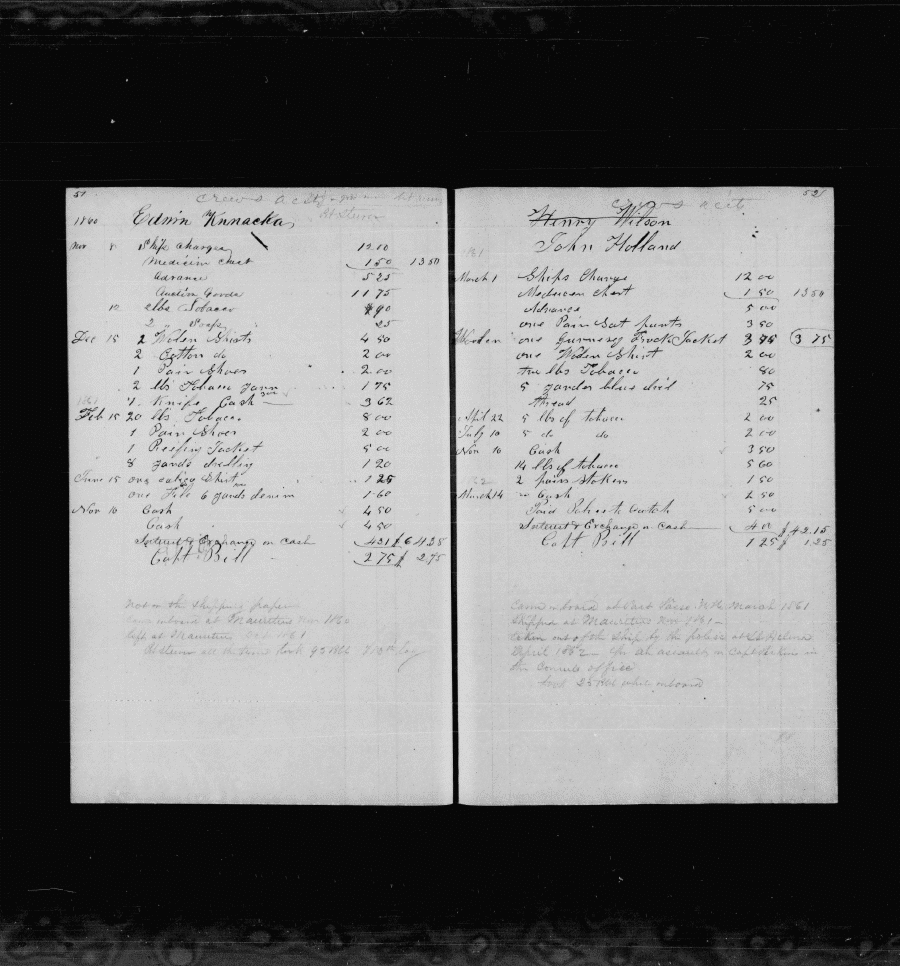 51
Crews acct
1860 Edwin Knnacka
Nov 8 Ship Charges 12 00
Medicin Chest 1 50 13 50
Advance 5 25
Auction Goods 11 75
10 Tobacco 90
2 " Soap " 25
Dec 15 2 Wolen Shirts 4 50
2 Cotton do 2 00
1 Pair Shoes 2 00
2 lbs Tobacco 1 75
1861 1 Knife Cash 3 62
Feb 15 20 lbs Tobacco 8 00
1 Pair Shoes 2 00
1 Reefing Jacket 5 00
8 yards drilling 1 20
June 15 one calico Shirt 1 25
one 6 yards denim 1 60
Nov 10 Cash 4 50
Cash 4 50
Interest & Exchange on Cash
Capt Bill 2 75 2.75
not on the shipping paper
came onboard at Mauritius Nov 1860
left at Mauritius Oct 1861
52
Crews acct
Henry Wilson
John Holland
1861
March 1 Ships Charge 12 00
Medecen Chest 1 50 13 50
Advance 5 00
one Pair Sat pants 3 50
one Gurnesey Frock Jacket 3 75 3 75
one Wolen Shirt 2 00
two lbs Tobacco 80
5 yardes blue dril 75
thread 25
April 22 5 lbs of tobacco 2 00
July 10 5 do do 2 00
Nov 10 Cash 3 50
14 lbs of tobacco 5 60
1862 2 pairs Stokens 1 50
March 14 Cash 2 50
Paid 5 00
Interest & Exchange on Cash 40 $42.15
Capt Bill 1 25 $ 1 25
came onboard at March 1861
shipped at Mauritius Nov 1861
taken out of the ship by the police at St Helena
April 1862 for an assault on Capt in
the Consuls office
took 25 lbs while onboard